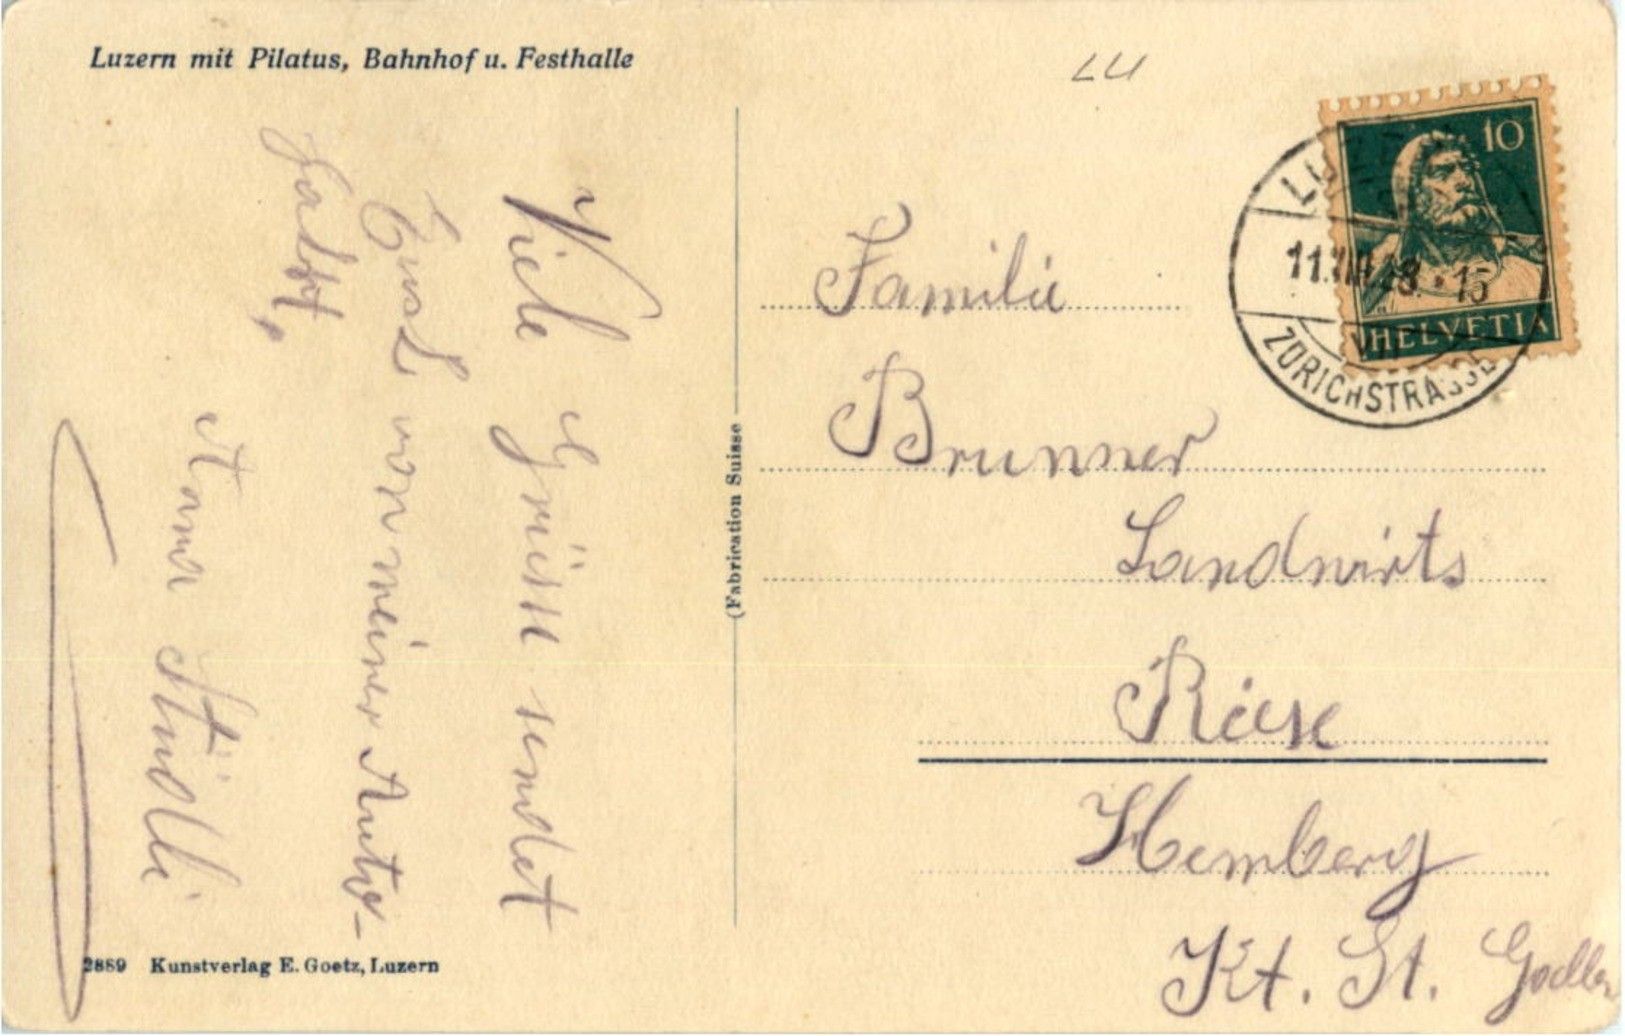 Luzern mit Pilatus, Bahnhof u. Festhalle
LU
10
HELVETIA
11.VIII.28.-15
VIII
ZÜRICHSTRASSE
Viele Grüsse sendet
Euch von meiner Auto-
fahrt,
Anna Stüdli
(Fabrication Suisse
Familie
Brunner
Landwirts
Riese
Hemberg
Kt. St. Gallen
2889 Kunstverlag E. Goetz, Luzern